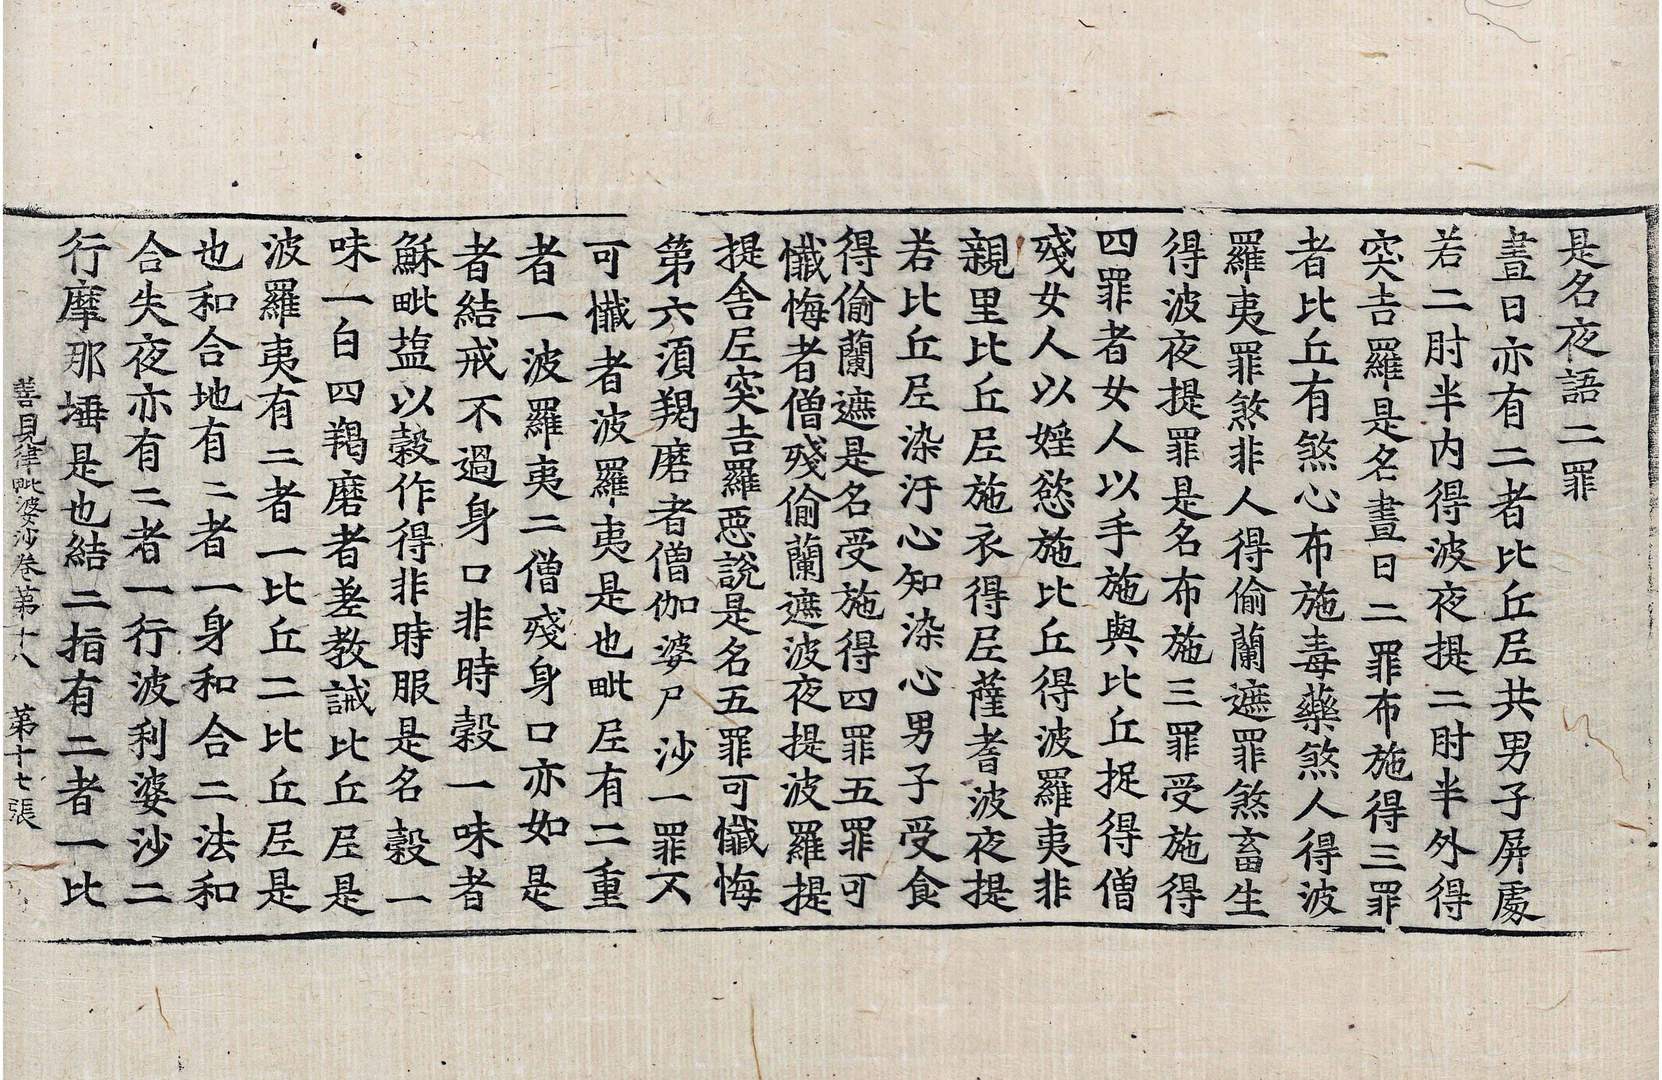 是名夜語二罪
晝日亦有二者比丘尼共男子屏處
若二肘半內得波夜提二肘半外得
突吉羅是名晝日二罪布施得三罪
者比丘有煞心布施毒藥煞人得波
羅夷罪煞非人得偷蘭遮罪煞畜生
得波夜提罪是名布施三罪受施得
四罪者女人以手施與比丘捉得僧
殘女人以婬慾施比丘得波羅夷非
親里比丘尼施衣得尼薩耆波夜提
若比丘尼染汙心知染心男子受食
得偷蘭遮是名受施得四罪五罪可
懺悔者僧殘偷蘭遮波夜提波羅提
提舍尼突吉羅惡說是名五罪可懺悔
第六須羯磨者僧伽婆尸沙一罪不
可懺者波羅夷是也毗尼有二重
者一波羅夷二僧殘身口亦如是
者結戒不過身口非時穀一味者
酥毗鹽以穀作得非時服是名穀一
味一白四羯磨者差教誡比丘尼是
波羅夷有二者一比丘二比丘尼是
也和合地有二者一身和合二法和
合失夜亦有二者一行波利婆沙二
行摩那埵是也結二指有二者一比
善見律毗婆沙卷第十八　第十七張